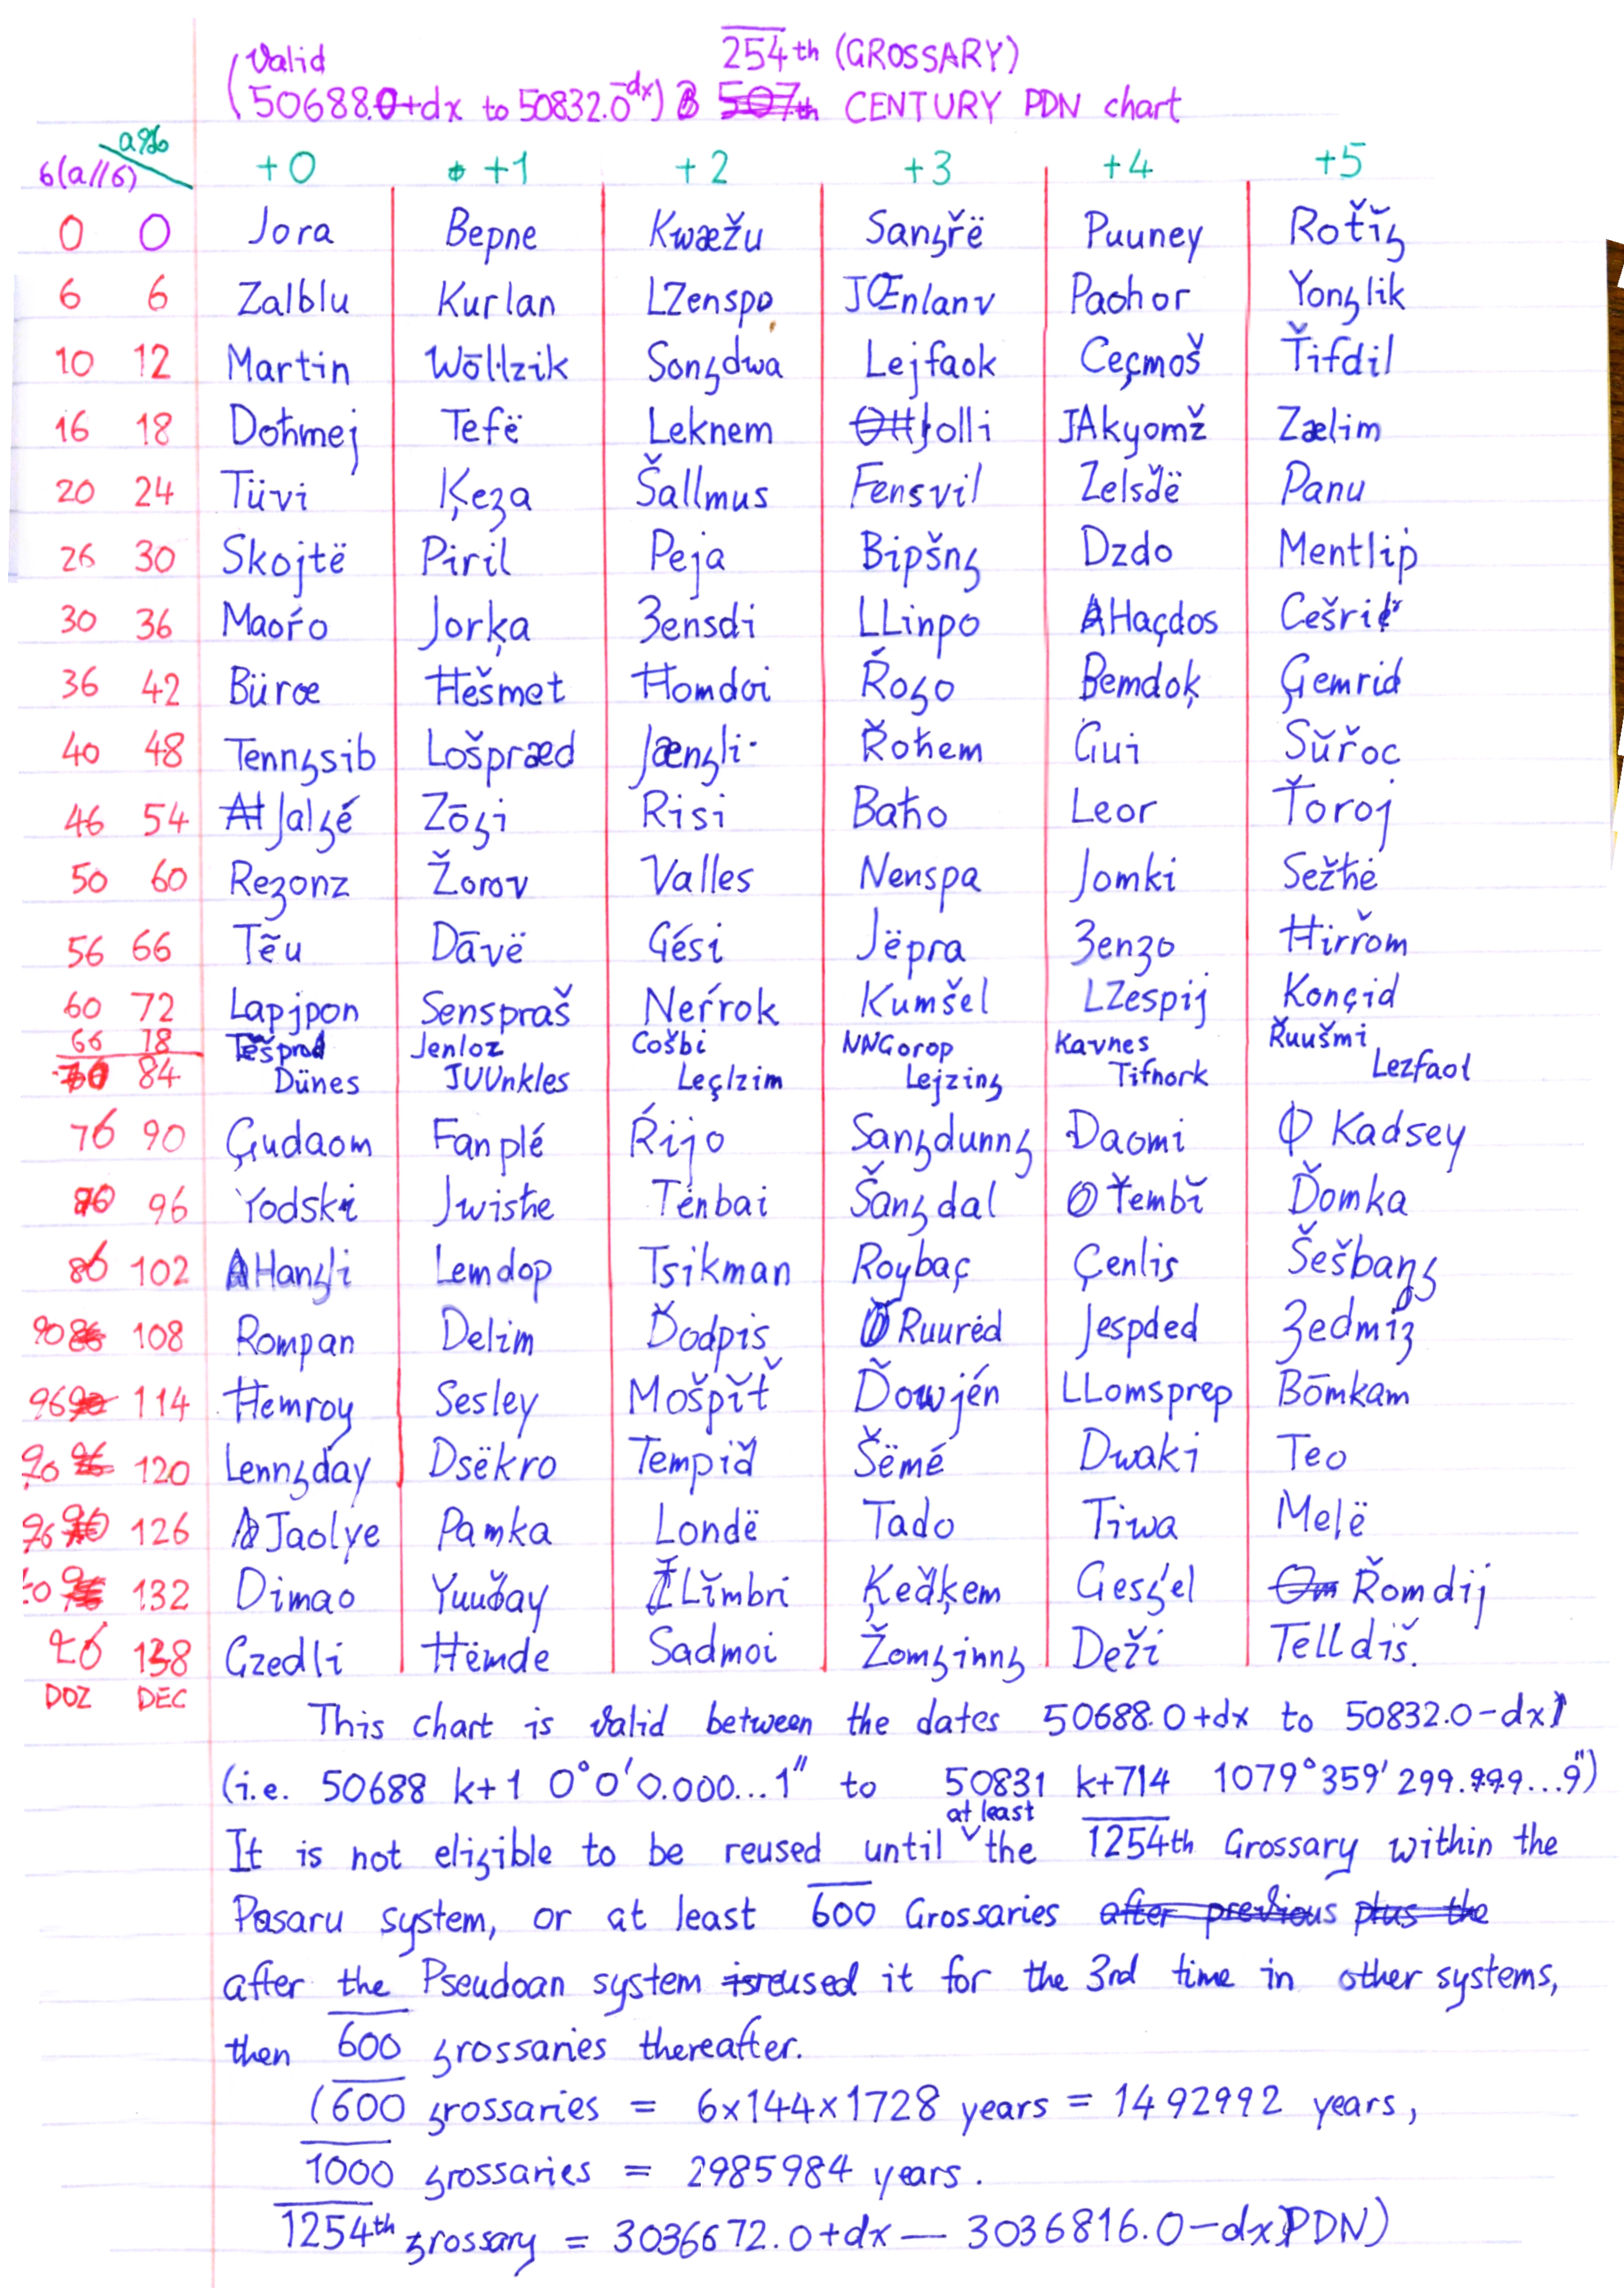 (Valid 254th (GROSSARY)
50688.0+dx to 50832.0-dx) 507th CENTURY PDN chart
a%6
6(a//6) +0 +1 +2 +3 +4 +5
0 0 Jora Bepne Kwæžu Sanȝřë Puuney Roťǐȝ
6 6 Zalblu Kurlan LZenspo JŒnlanv Paohor Yonȝlik
10 12 Martin Wōllzik Sonȝdwa Lejfaok Ceçmoš Ťifdil
16 18 Doħmej Tefë Leknem Jolli JAkyomž Zælim
20 24 Tüvi Ķeza Šallmus Fensvil Zelsďë Panu
26 30 Skojtë Piril Peja Bipšnȝ Dzdo Mentlip
30 36 Maoŕo Jorķa Зensdi LLinpo AHaçdos
36 42 Büræ Ħešmet Ħomdoi Ŕoȝo BemdoķĢemrid
40 48 Tennȝsib Lošpræd Jænȝli Řoħem Ġui Sŭřoc
46 54 Jalȝé Zōȝi Risi Baħo Leor Ťoroj
50 60 Rezonz Žorov Valles Nenspa Jomki Sežħė
56 66 Tẽu Dāvë Gési Jëpra Зenzo Ħirřom
60 72 Lapjpon Senspraš Neŕrok Kumšel LZespij Konçid
66 78 Tešprod Jenloz Cošbi NNGorop Kavnes Řuušmi
70 84 Dünes JUUnkles Leçlzim Lejzinȝ Tifħork Lezfaol
76 90 Ģudaom Fanplé Ŕijo Sanȝdunnȝ Daomi Kadsey
80 96 Yodski Jwisħe Tėnbai Šanȝdal Ťembǐ Ďomka
86 102 AHanȝli Lemdop Tsikman Roybaç Çenlis Šešbanȝ
90 108 Rompan Delim Ďodpis Ruurėd Jespded Зedmiz
96 114 Ħemroy Sesley Mošpǐť Ďowjén LLomsprep Bōmkam
120 Lennȝday Dsëkro Tempiď Šëmé Dwaki Teo
126 Jaolye Pamka Londë Tado Tiwa Melë
132 Dimao Yuuďay Lǐmbri Ķeďķem Gesȝ'el Řomdij
138 Gzedli Ħëmde Sadmoi Žomȝinnȝ Deži Telldiš.
DOZ DEC
This chart is valid between the dates 50688.0+dx to 50832.0-dx)
(i.e. 50688 k+1 0°0'0.000...1" to 50831 k+714 1079°359'299.999...9")
It is not eligible to be reused until at least the 1254th Grossary within the
Pasaru system, or at least 600 Grossaries after previous plus the
after the Pseudoan system reused it for the 3rd time in other systems,
then 600 grossaries thereafter.
(600 grossaries = 6x144x1728 years = 1492992 years,
1000 grossaries = 2985984 years.
1254th grossary = 3036672.0+dx — 3036816.0-dx PDN)